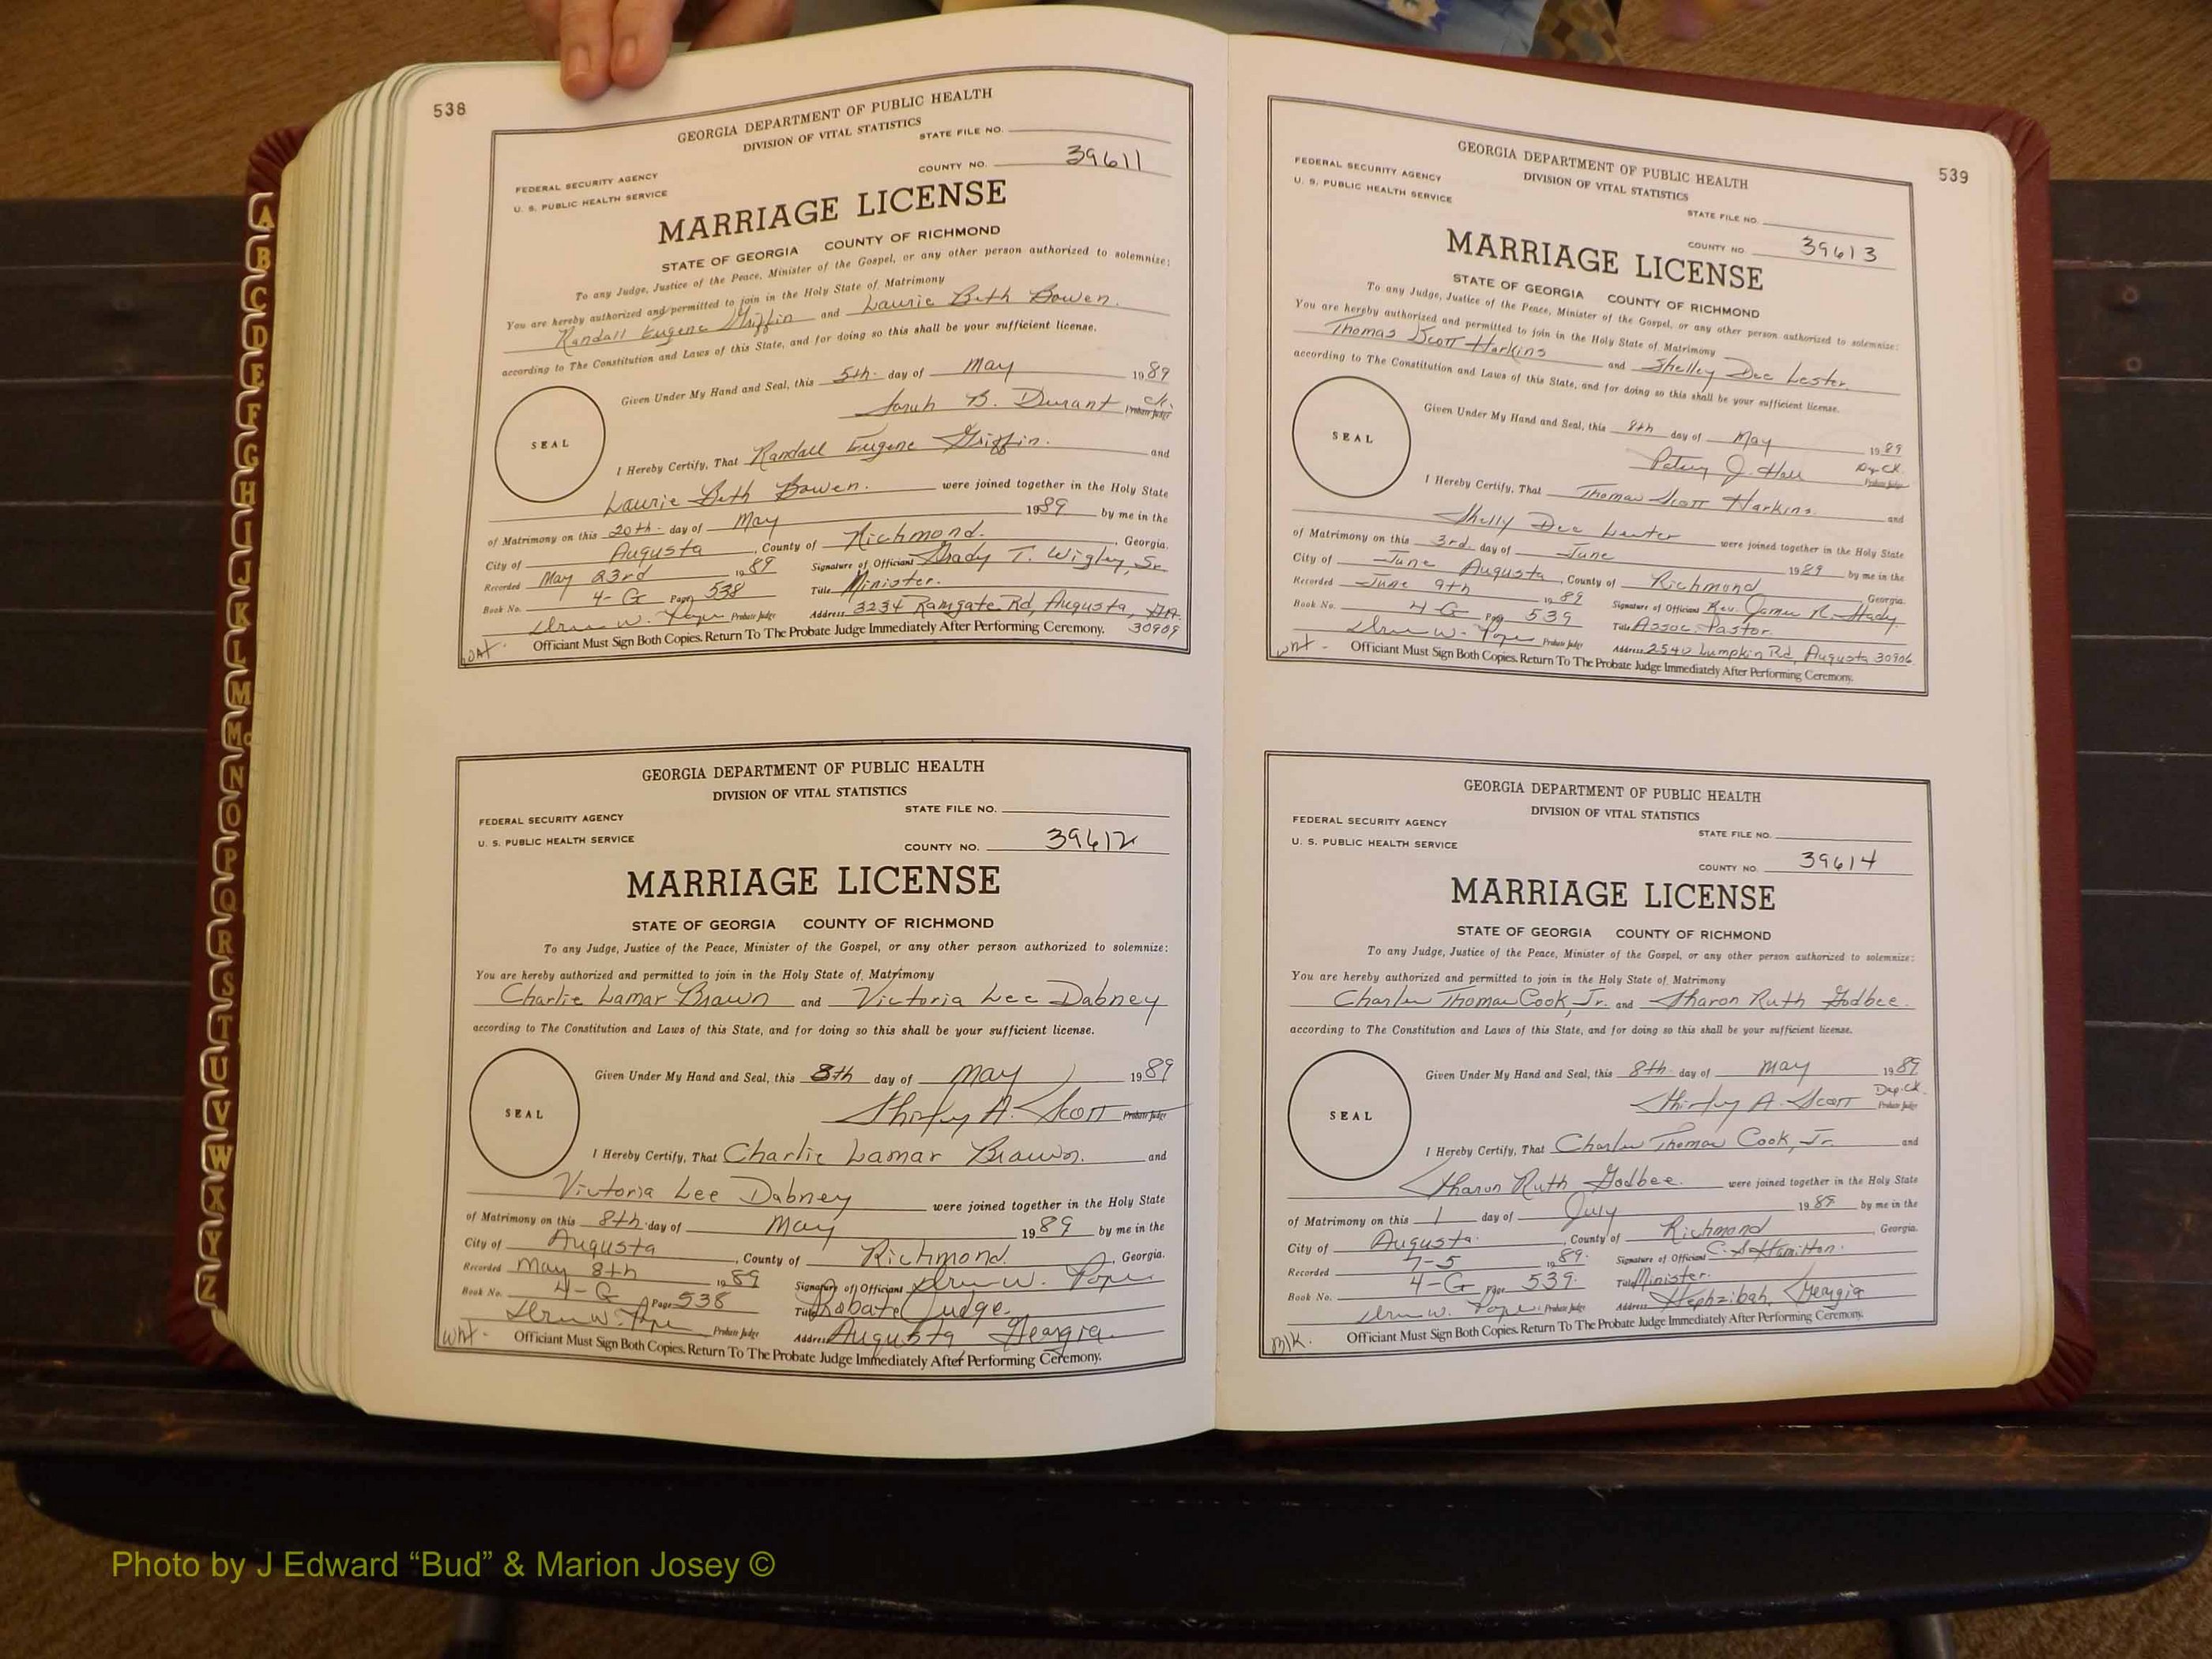 538
GEORGIA DEPARTMENT OF PUBLIC HEALTH
DIVISION OF VITAL STATISTICS
STATE FILE NO.
COUNTY NO. 39611
FEDERAL SECURITY AGENCY
U. S. PUBLIC HEALTH SERVICE
MARRIAGE LICENSE
STATE OF GEORGIA COUNTY OF RICHMOND
To any Judge, Justice of the Peace, Minister of the Gospel, or any other person authorized to solemnize:
You are hereby authorized and permitted to join in the Holy State of Matrimony
Randall Eugene Griffin and Laurie Beth Bowen.
according to The Constitution and Laws of this State, and for doing so this shall be your sufficient license.
Given Under My Hand and Seal, this 5th day of May 1989
Sarah B. Durant Clk. Probate Judge
SEAL
I Hereby Certify, That Randall Eugene Griffin. and
Laurie Beth Bowen. were joined together in the Holy State
of Matrimony on this 20th day of May 1989 by me in the
City of Augusta, County of Richmond. Georgia.
Recorded May 23rd 1989 Signature of Officiant Grady T. Wigley, Sr.
Book No. 4-G Page 538 Title Minister.
W. Pope Probate Judge Address 3234 Ramgate Rd, Augusta, GA. 30909
Officiant Must Sign Both Copies. Return To The Probate Judge Immediately After Performing Ceremony.
GEORGIA DEPARTMENT OF PUBLIC HEALTH
DIVISION OF VITAL STATISTICS
STATE FILE NO.
FEDERAL SECURITY AGENCY
U. S. PUBLIC HEALTH SERVICE
COUNTY NO. 39612
MARRIAGE LICENSE
STATE OF GEORGIA COUNTY OF RICHMOND
To any Judge, Justice of the Peace, Minister of the Gospel, or any other person authorized to solemnize:
You are hereby authorized and permitted to join in the Holy State of Matrimony
Charlie Lamar Brawn and Victoria Lee Dabney
according to The Constitution and Laws of this State, and for doing so this shall be your sufficient license.
Given Under My Hand and Seal, this 8th day of May 1989
Shirley A. Scott Probate Judge
SEAL
I Hereby Certify, That Charlie Lamar Brawn. and
Victoria Lee Dabney were joined together in the Holy State
of Matrimony on this 8th day of May 1989 by me in the
City of Augusta, County of Richmond. Georgia.
Recorded May 8th 1989 Signature of Officiant W. Pope
Book No. 4-G Page 538 Title Probate Judge.
W. Pope Probate Judge Address Augusta Georgia
Wht. Officiant Must Sign Both Copies. Return To The Probate Judge Immediately After Performing Ceremony.
539
GEORGIA DEPARTMENT OF PUBLIC HEALTH
DIVISION OF VITAL STATISTICS
FEDERAL SECURITY AGENCY
U. S. PUBLIC HEALTH SERVICE
STATE FILE NO.
COUNTY NO. 39613
MARRIAGE LICENSE
STATE OF GEORGIA COUNTY OF RICHMOND
To any Judge, Justice of the Peace, Minister of the Gospel, or any other person authorized to solemnize:
You are hereby authorized and permitted to join in the Holy State of Matrimony
Thomas Scott Harkins and Shelley Dee Lester.
according to The Constitution and Laws of this State, and for doing so this shall be your sufficient license.
Given Under My Hand and Seal, this 8th day of May 1989
J. Hall Dep. Ck. Probate Judge
SEAL
I Hereby Certify, That Thomas Scott Harkins. and
Shelly Dee were joined together in the Holy State
of Matrimony on this 3rd day of June 1989 by me in the
City of June Augusta, County of Richmond Georgia.
Recorded June 9th 1989 Signature of Officiant Rev. James R.
Book No. 4-G Page 539 Title Assoc. Pastor.
W. Pope Probate Judge Address 2540 Lumpkin Rd, Augusta 30906
Wht. Officiant Must Sign Both Copies. Return To The Probate Judge Immediately After Performing Ceremony.
GEORGIA DEPARTMENT OF PUBLIC HEALTH
DIVISION OF VITAL STATISTICS
FEDERAL SECURITY AGENCY
U. S. PUBLIC HEALTH SERVICE
STATE FILE NO.
COUNTY NO. 39614
MARRIAGE LICENSE
STATE OF GEORGIA COUNTY OF RICHMOND
To any Judge, Justice of the Peace, Minister of the Gospel, or any other person authorized to solemnize:
You are hereby authorized and permitted to join in the Holy State of Matrimony
Charles Thomas Cook, Jr. and Sharon Ruth Godbee.
according to The Constitution and Laws of this State, and for doing so this shall be your sufficient license.
Given Under My Hand and Seal, this 8th day of May 1989
Shirley A. Scott Dep. Ck. Probate Judge
SEAL
I Hereby Certify, That Charles Thomas Cook, Jr. and
Sharon Ruth Godbee. were joined together in the Holy State
of Matrimony on this 1 day of July 1989 by me in the
City of Augusta. County of Richmond Georgia.
Recorded 7-5 1989. Signature of Officiant C. S. Hamilton.
Book No. 4-G Page 539. Title Minister.
W. Pope. Probate Judge Address Hephzibah, Georgia
Blk. Officiant Must Sign Both Copies. Return To The Probate Judge Immediately After Performing Ceremony.
A
B
C
D
E
F
G
H
I
J
K
L
M
Mc
N
O
P
Q
R
S
T
U
V
W
X
Y
Z
Photo by J Edward “Bud” & Marion Josey ©